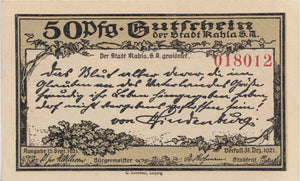 50 Pfg. Gutschein
der Stadt Kahla S.A.
Der Stadt Kahla, S.A. gewidmet.
018012
Das Blut aller derer, die im
Glauben an des Vaterlandes Größe
freudig ihr Leben hingegeben haben,
darf nicht vergebens geflossen sein!
von Hindenburg
Ausgabe 15. Sept. 1921.
Bürgermeister
Stadtrat
Verfall 31. Dez. 1921.
Leipzig